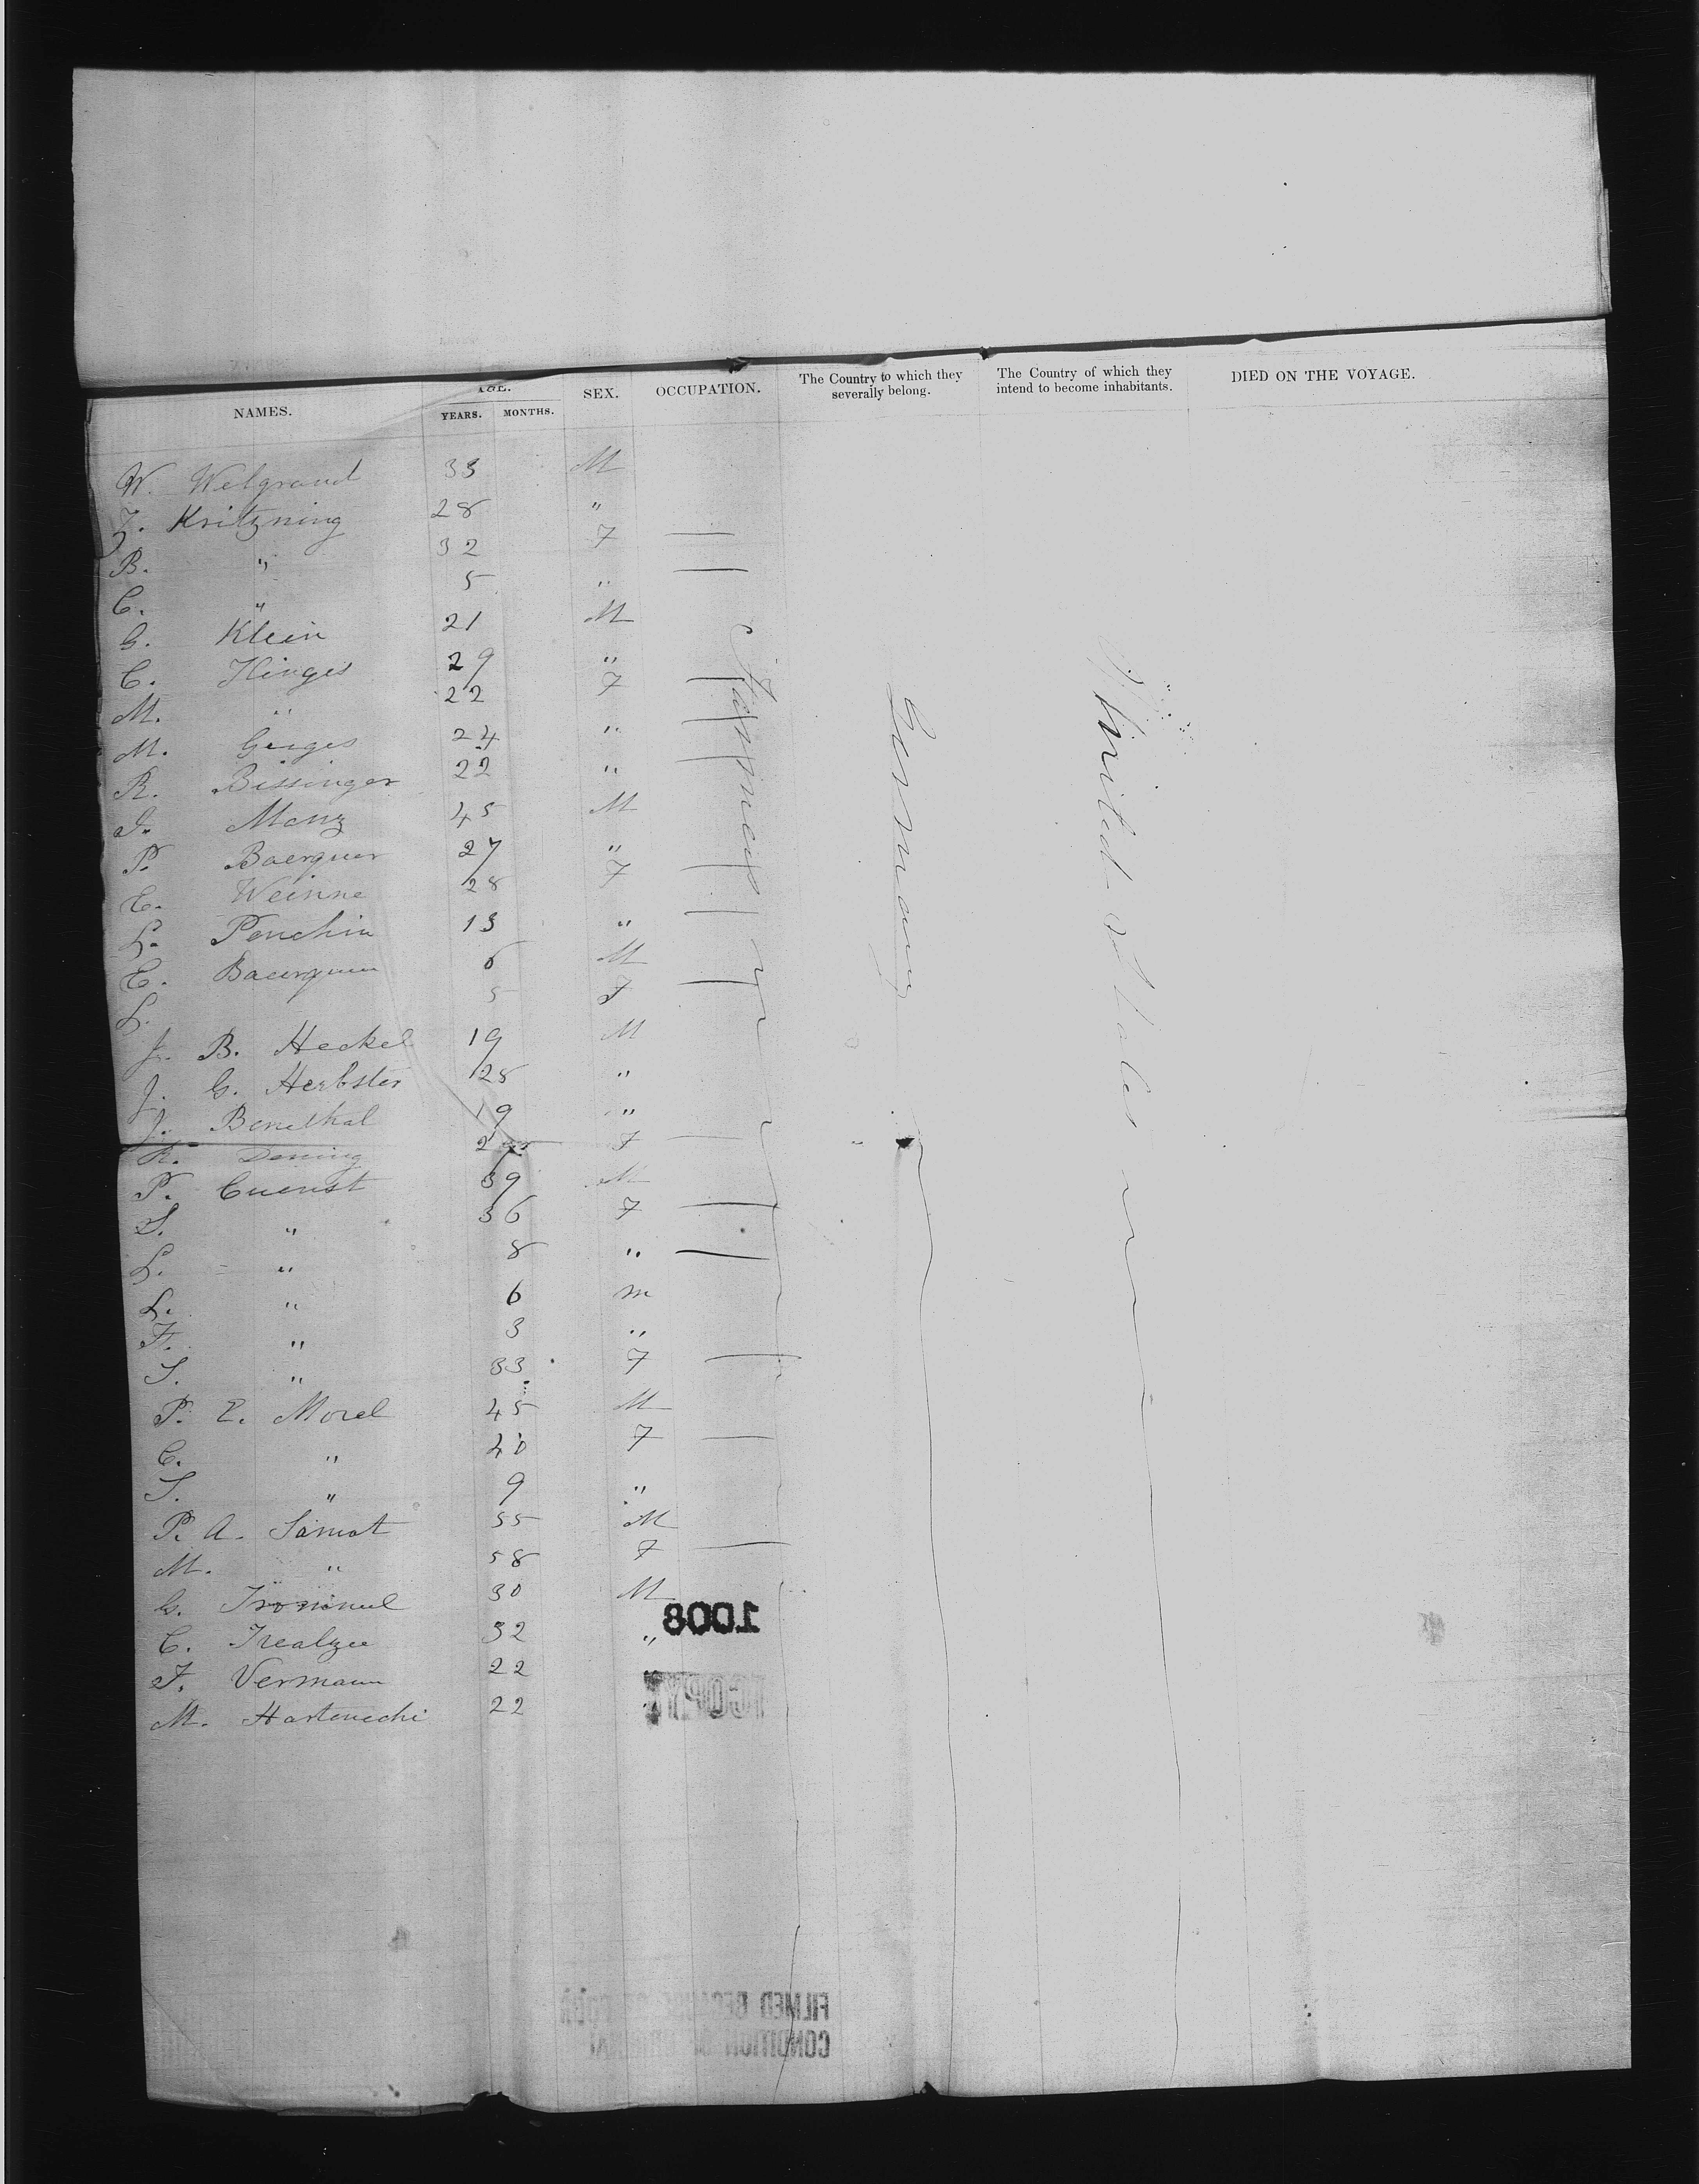 NAMES. AGE. YEARS. MONTHS. SEX. OCCUPATION. The Country to which they severally belong. The Country of which they intend to become inhabitants. DIED ON THE VOYAGE.
W. Welgrand 33 M
J. Kritzning 28 "
B. " 32 F —
C. " 5 " —
G. Klein 21 M
C. Hinges 29 "
M. " 22 F —
M. Geiges 24 " —
R. Bissinger 22 " —
J. Manz 45 M
P. Baerguer 27 "
E. Weinne 28 F —
L. Penchin 13 " —
E. Baerguer 6 M
L. 5 F —
J. B. Heckel 19 M
J. G. Herbster 28 "
J. Benethal 19 "
R. Dening F —
P. Cuenst 39 M
S. " 36 F —
L. " 8 " —
L. " 6 m
F. " 3 "
S. " 33 F —
P. E. Morel 45 M
C. " 40 F —
S. " 9 "
P. A. Samot 55 M
M. " 58 F —
G. Trommel 30 M
C. 32 "
F. Vermann 22 "
M. Hartenechi 22 "
Farmers
Germany
United States
1008
COPY
FILMED BECAUSE OF POOR
CONDITION OF ORIGINAL